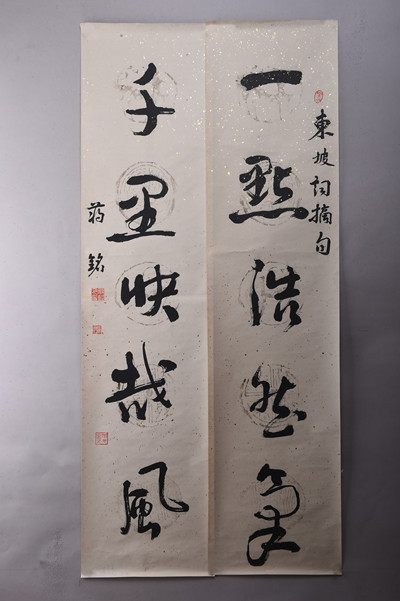 東坡詞摘句
一點浩然氣
千里快哉風
蔣銘